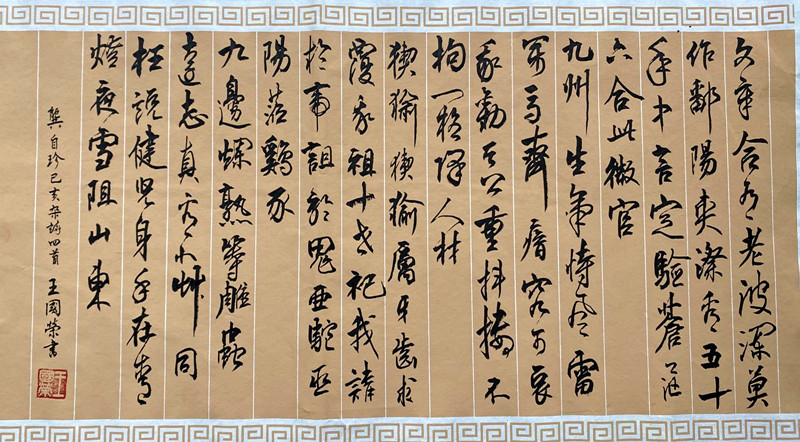 文章合有老波瀾莫
作鄱陽夾漈看五十
年中言定驗蒼茫
六合此微官
九州生氣恃風雷
萬馬齊瘖究可哀
我勸天公重抖擻不
拘一格降人材
猰貐猰貐厲牙齒求
覆我祖十世祀我請
於帝詛於鬼亞駝巫
陽蒞雞豕
九邊爛熟等雕蟲
遠志真看小艸同
枉說健兒身手在青
燈夜雪阻山東
龔自珍己亥雜詩四首 王國榮書
王國榮